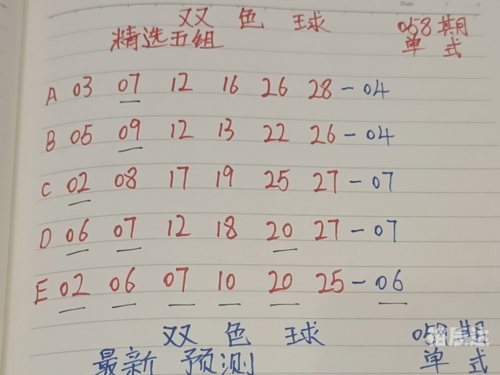 双 色 球 058期
精选五组 单 式
A 03 07 12 16 26 28-04
B 05 09 12 13 22 26-04
C 02 08 17 19 25 27-07
D 06 07 12 18 20 27-07
E 02 06 07 10 20 25-06
双 色 球 058期
最新 预测 单 式